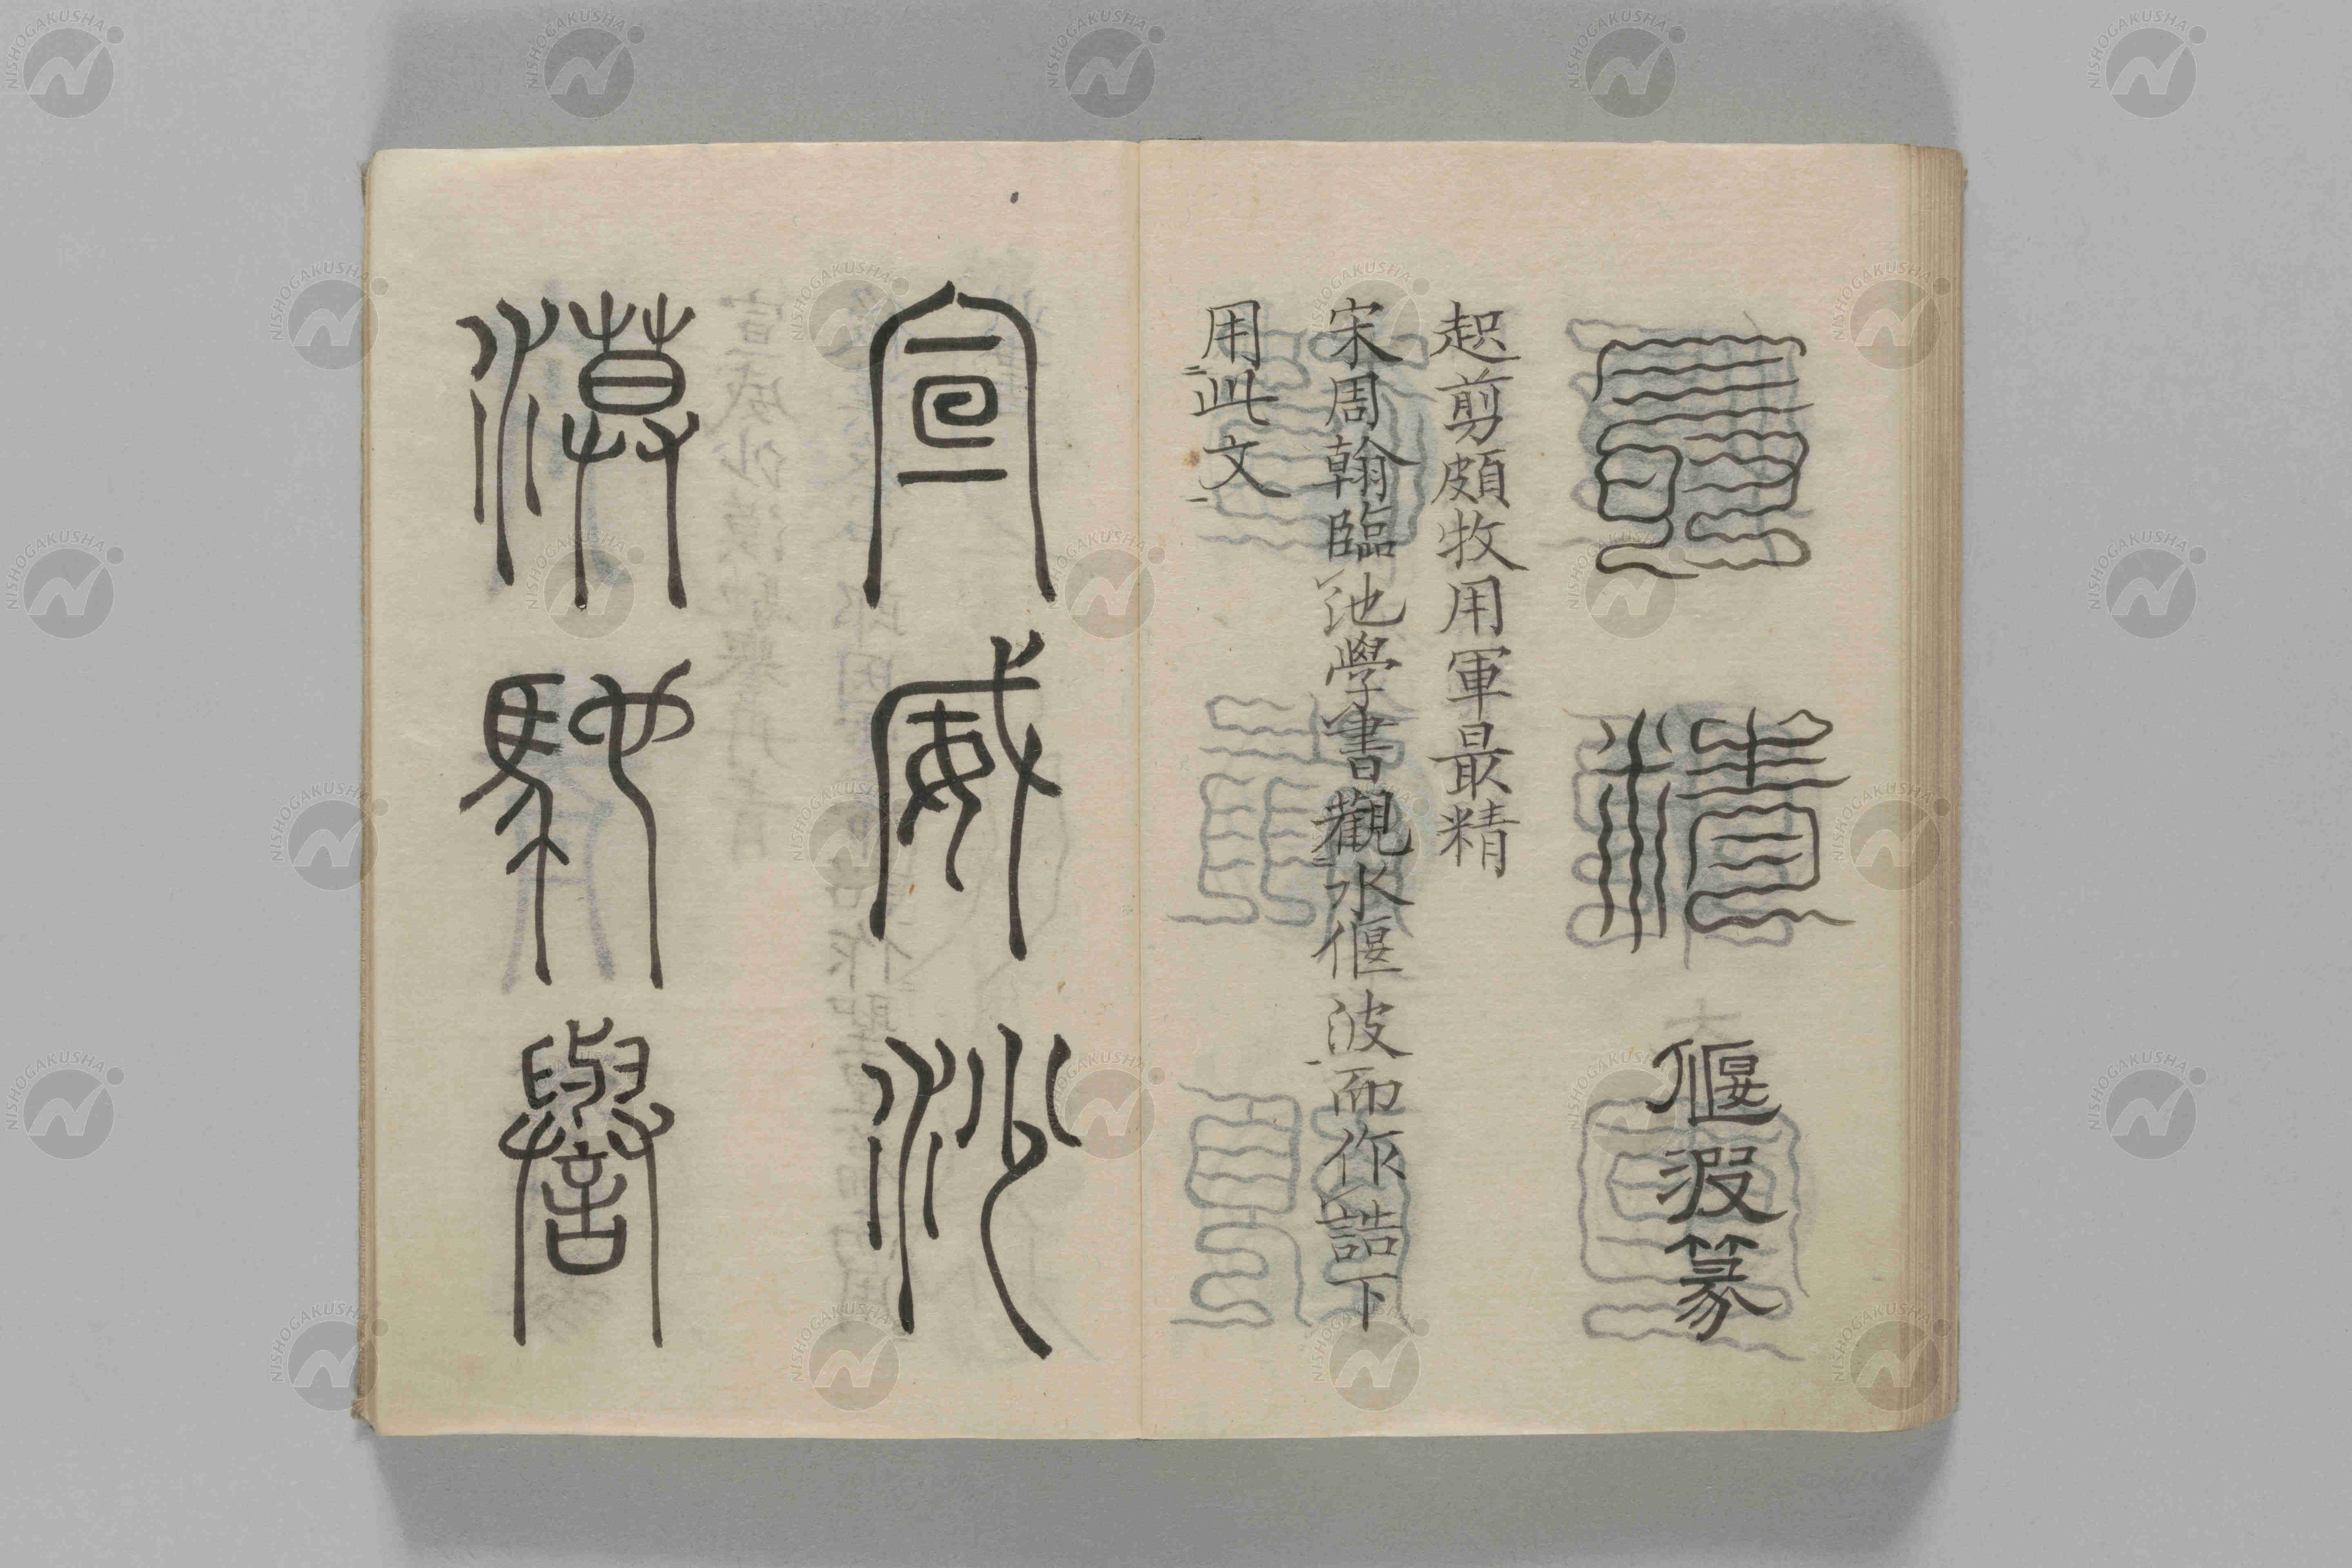 最精 偃波篆
起剪頗牧用軍最精
宋周翰臨池學書觀水偃波而作誥下
用此文
宣威沙
漠馳譽
NISHOGAKUSHA